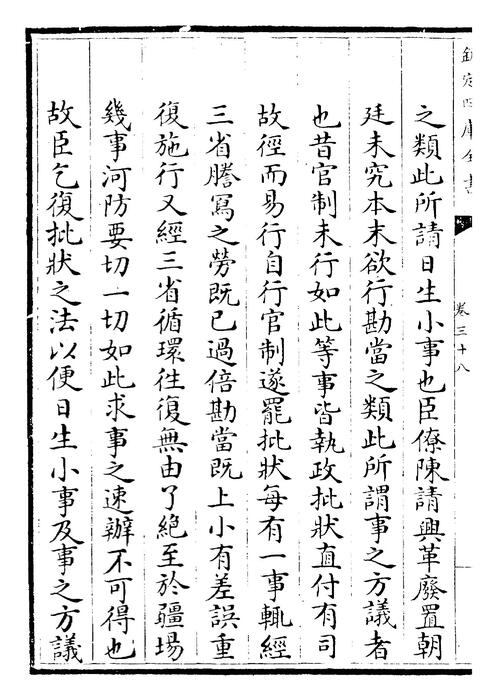 欽定四庫全書
卷三十八
之類此所請日生小事也臣僚陳請興革廢置朝
廷未究本末欲行勘當之類此所謂事之方議者
也昔官制未行如此等事皆執政批狀直付有司
故徑而易行自行官制遂罷批狀每有一事輒經
三省謄寫之勞既已過倍勘當既上小有差誤重
復施行又經三省循環往復無由了絶至於疆場
幾事河防要切一切如此求事之速辦不可得也
故臣乞復批狀之法以便日生小事及事之方議